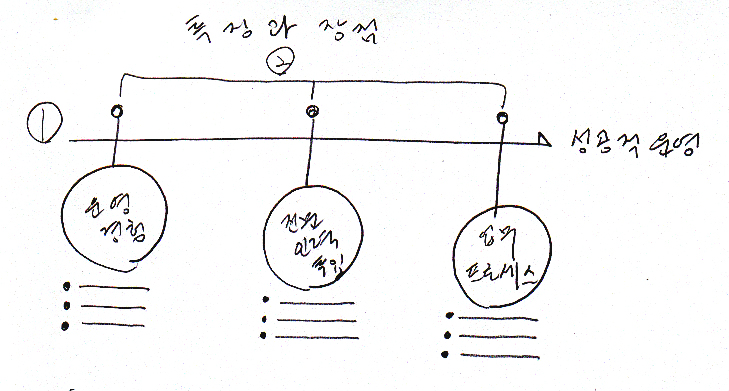 특징과 장점
②
①
성공적 운영
운영
경험
전문
인력
투입
업무
프로세스